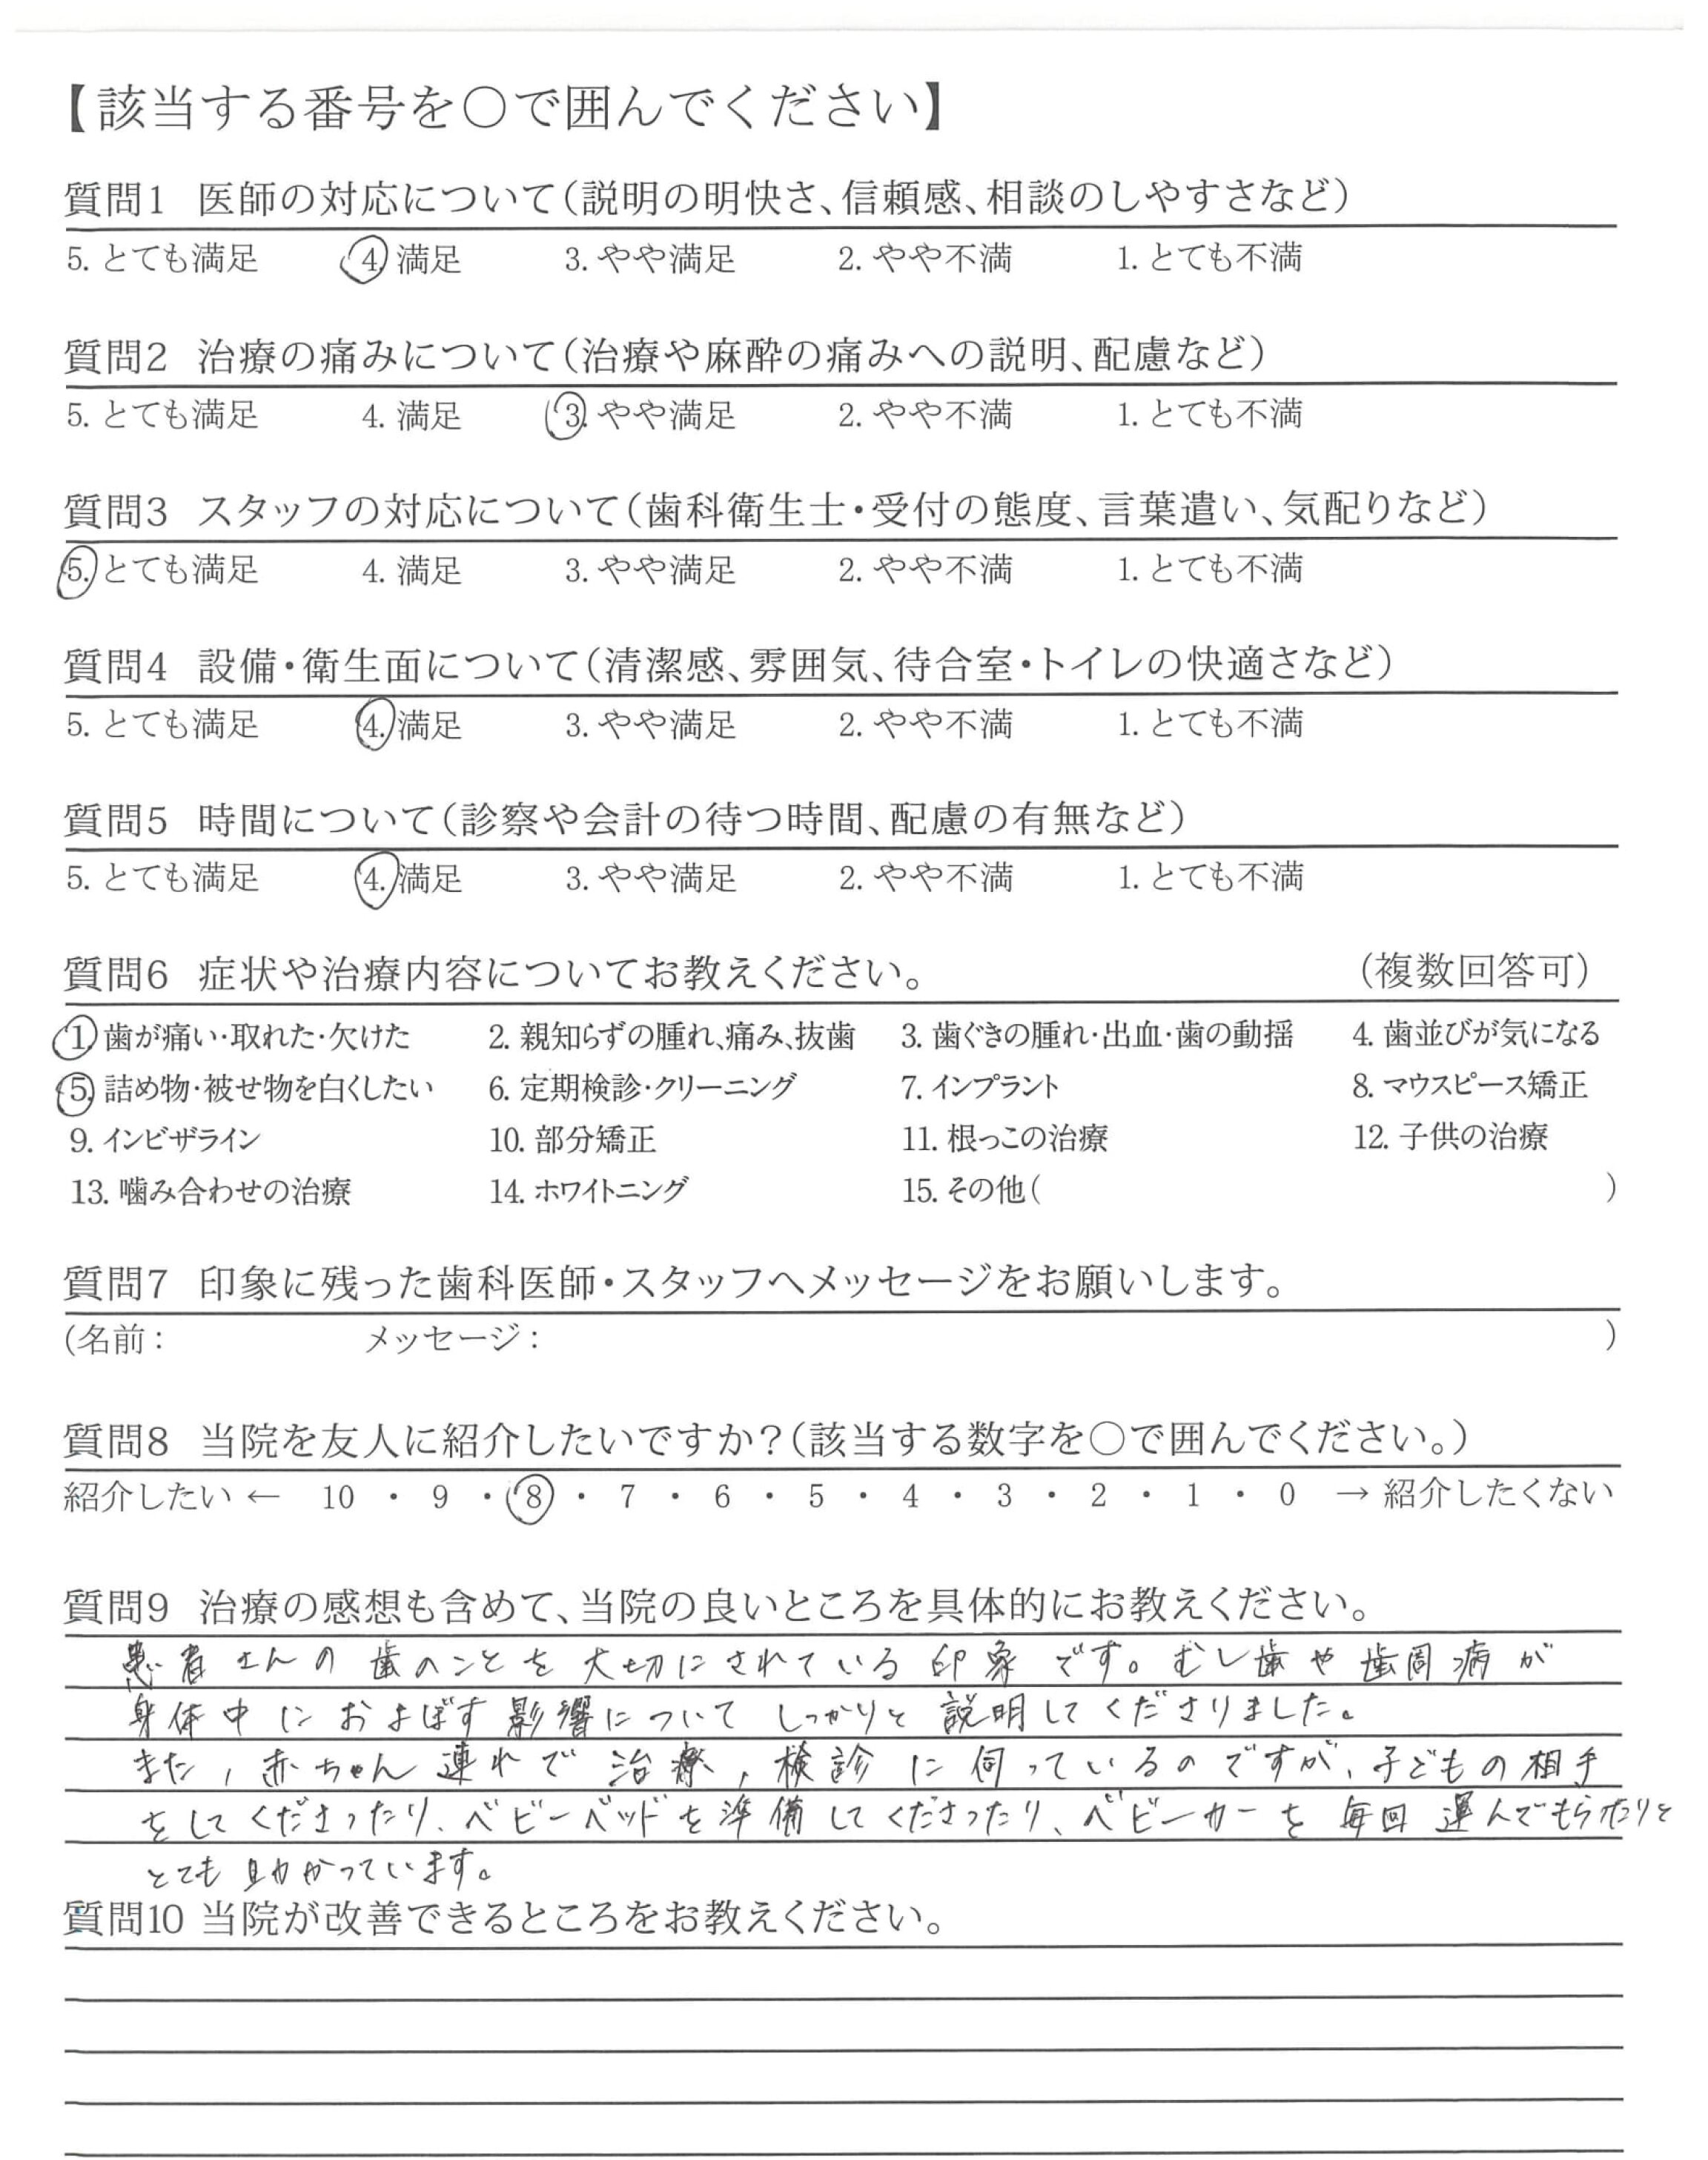 【該当する番号を○で囲んでください】
質問1 医師の対応について（説明の明快さ、信頼感、相談のしやすさなど）
5. とても満足 4. 満足 3. やや満足 2. やや不満 1. とても不満
質問2 治療の痛みについて（治療や麻酔の痛みへの説明、配慮など）
5. とても満足 4. 満足 3. やや満足 2. やや不満 1. とても不満
質問3 スタッフの対応について（歯科衛生士・受付の態度、言葉遣い、気配りなど）
5. とても満足 4. 満足 3. やや満足 2. やや不満 1. とても不満
質問4 設備・衛生面について（清潔感、雰囲気、待合室・トイレの快適さなど）
5. とても満足 4. 満足 3. やや満足 2. やや不満 1. とても不満
質問5 時間について（診察や会計の待つ時間、配慮の有無など）
5. とても満足 4. 満足 3. やや満足 2. やや不満 1. とても不満
質問6 症状や治療内容についてお教えください。 （複数回答可）
1. 歯が痛い・取れた・欠けた 2. 親知らずの腫れ、痛み、抜歯 3. 歯ぐきの腫れ・出血・歯の動揺 4. 歯並びが気になる
5. 詰め物・被せ物を白くしたい 6. 定期検診・クリーニング 7. インプラント 8. マウスピース矯正
9. インビザライン 10. 部分矯正 11. 根っこの治療 12. 子供の治療
13. 噛み合わせの治療 14. ホワイトニング 15. その他（ ）
質問7 印象に残った歯科医師・スタッフへメッセージをお願いします。
（名前： メッセージ： ）
質問8 当院を友人に紹介したいですか？（該当する数字を○で囲んでください。）
紹介したい ← 10 ・ 9 ・ 8 ・ 7 ・ 6 ・ 5 ・ 4 ・ 3 ・ 2 ・ 1 ・ 0 → 紹介したくない
質問9 治療の感想も含めて、当院の良いところを具体的にお教えください。
患者さんの歯のことを大切にされている印象です。むし歯や歯周病が
身体中におよぼす影響についてしっかりと説明してくださりました。
また，赤ちゃん連れで治療，検診に伺っているのですが、子どもの相手
をしてくださったり、ベビーベッドを準備してくださったり、ベビーカーを毎回運んでもらったりと
とても助かっています。
質問10 当院が改善できるところをお教えください。